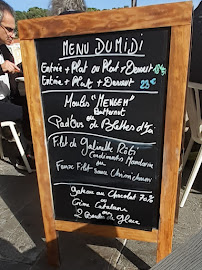 MENU DU MIDI
Entrée + Plat ou Plat + Dessert
Entrée + Plat + Dessert 23€
Moules "
Butternut
ou
de Blettes
Filet de Galinette Rôti
Condiments Mandarine
ou
Faux Filet - Sauce Chimichurri
Gateau au Chocolat 70%
ou
Crème Catalane
ou
2 Boules de Glace